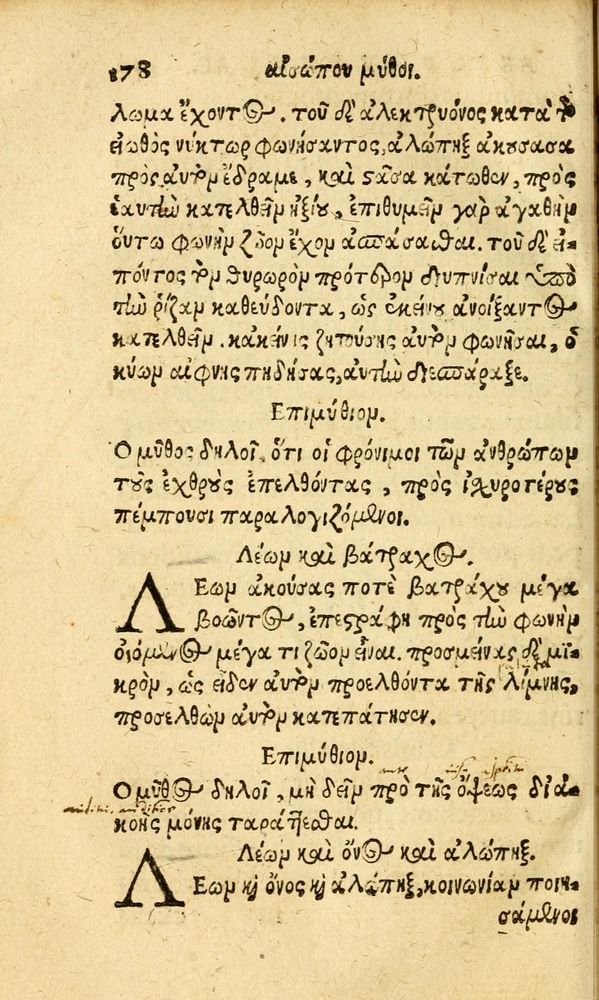 178 αἰσώπου μῦθοι.
λωμα ἔχοντος. τοῦ δὲ ἀλεκτρυόνος κατὰ τὸ
εἰωθὸς νύκτωρ φωνήσαντος, ἀλώπηξ ἀκούσασα
πρὸς αὐτὸν ἔδραμε, καὶ στᾶσα κάτωθεν, πρὸς
ἑαυτὴν κατελθεῖν ἠξίου, ἐπιθυμεῖν γὰρ ἀγαθὴν
οὕτω φωνὴν ζῶον ἔχον ἀσπάσασθαι. τοῦ δὲ εἰ-
πόντος τὸν θυρωρὸν πρότερον διυπνίσαι ὑπὸ
τὴν ῥίζαν καθεύδοντα, ὡς ἐκείνου ἀνοίξαντος
κατελθεῖν. κἀκείνης ζητούσης αὐτὸν φωνῆσαι, ὁ
κύων αἴφνης πηδήσας, αὐτὴν διεσπάραξε.
Επιμύθιον.
Ο μῦθος δηλοῖ, ὅτι οἱ φρόνιμοι τῶν ἀνθρώπων
τοὺς ἐχθροὺς ἐπελθόντας, πρὸς ἰσχυροτέρους
πέμπουσι παραλογιζόμενοι.
Λέων καὶ βάτραχος.
Λέων ἀκούσας ποτὲ βατράχου μέγα
βοῶντος, ἐπεστράφη πρὸς τὴν φωνὴν
οἰόμενος μέγα τι ζῶον εἶναι. προσμείνας δὲ μι-
κρὸν, ὡς εἶδεν αὐτὸν προελθόντα τῆς λίμνης,
προσελθὼν αὐτὸν κατεπάτησεν.
Επιμύθιον.
Ο μῦθος δηλοῖ, μὴ δεῖν πρὸ τῆς ὄψεως δι᾽ ἀ-
κοῆς μόνης ταράττεσθαι.
Λέων καὶ ὄνος καὶ ἀλώπηξ.
Λέων καὶ ὄνος καὶ ἀλώπηξ, κοινωνίαν ποιη-
σάμενοι